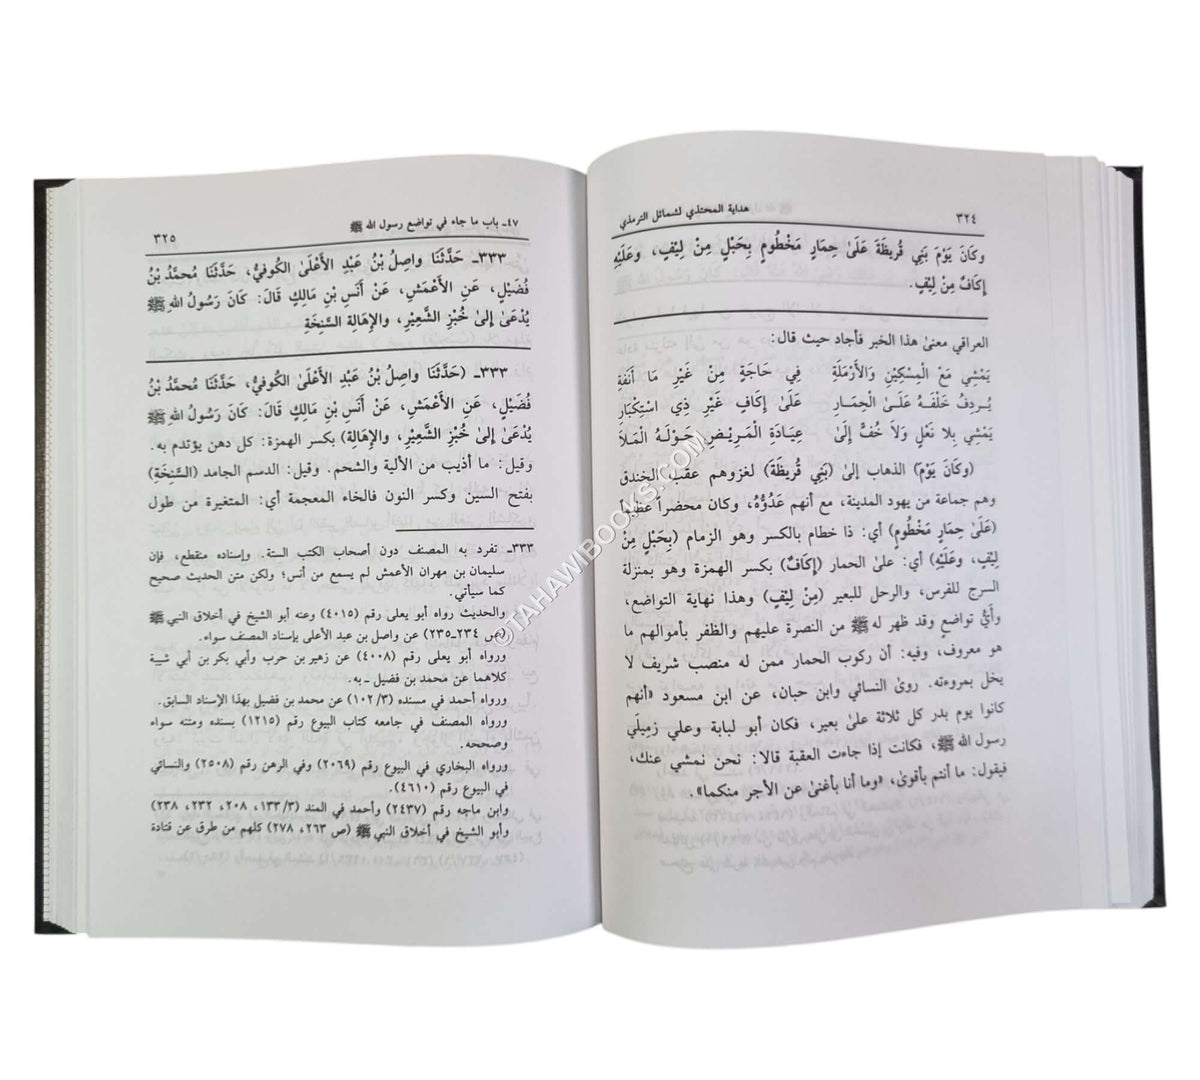 ٣٢٤ هداية المحتذي لشمائل الترمذي
وَكَانَ يَوْمَ بَنِي قُرَيظَةَ عَلَىٰ حِمَارٍ مَخْطُومٍ بِحَبْلٍ مِنْ لِيْفٍ، وَعَلَيْهِ
إِكَافٌ مِنْ لِيْفٍ.
العراقي معنىٰ هذا الخبر فأجاد حيث قال:
يَمْشِي مَعَ الْمِسْكِيْنِ وَالأَرْمَلَةِ فِي حَاجَةٍ مِنْ غَيْرِ مَا أَنَفَةِ
يُـرْدِفُ خَلْفَـهُ عَلَـىٰ الْحِمَـارِ عَلَىٰ إِكَافٍ غَيْرَ ذِي اسْتِكْبَارِ
يَمْشِي بِلا نَعْلٍ وَلَا خُفٍّ إِلَىٰ عِيَادَةِ الْمَرِيْضِ حَوْلَهُ الْمَلَا
(وكَانَ يَوْمَ) الذهاب إلىٰ (بَنِي قُرَيظَةَ) لغزوهم عقب الخندق
وهم جماعة من يهود المدينة، مع أنهم عَدُوُّهُ، وكان محضراً عظيماً
(عَلَىٰ حِمارٍ مَخْطُومٍ) أي: ذا خطام بالكسر وهو الزمام (بِحَبْلٍ مِنْ
لِيْفٍ، وَعَلَيْهِ) أي: علىٰ الحمار (إِكَافٌ) بكسر الهمزة وهو بمنزلة
السرج للفرس، والرحل للبعير (مِنْ لِيْفٍ) وهذا نهاية التواضع،
وأيُّ تواضع وقد ظهر له ﷺ من النصرة عليهم والظفر بأموالهم ما
هو معروف، وفيه: أن ركوب الحمار ممن له منصب شريف لا
يخل بمروءته. روىٰ النسائي وابن حبان، عن ابن مسعود «أنهم
كانوا يوم بدر كل ثلاثة علىٰ بعير، فكان أبو لبابة وعلي زميلَي
رسول الله ﷺ، فكانت إذا جاءت العقبة قالا: نحن نمشي عنك،
فيقول: ما أنتم بأقوىٰ، «وما أنا بأغنىٰ عن الأجر منكما».
٤٧ـ باب ما جاء في تواضع رسول الله ﷺ ٣٢٥
٣٣٣ـ حَدَّثَنَا واصِلُ بْنُ عَبْدِ الأَعْلَىٰ الكُوفيُّ، حَدَّثَنَا مُحمَّدُ بْنُ
فُضَيْلٍ، عَنِ الأَعْمَشِ، عَنْ أَنَسِ بْنِ مَالِكٍ قَالَ: كَانَ رَسُولُ اللهِ ﷺ
يُدْعَىٰ إِلىٰ خُبْزِ الشَّعِيْرِ، والإِهَالةِ السَّنِخَةِ
٣٣٣ـ (حَدَّثَنَا واصِلُ بْنُ عَبْدِ الأَعْلَىٰ الكُوفيُّ، حَدَّثَنَا مُحمَّدُ بْنُ
فُضَيْلٍ، عَنِ الأَعْمَشِ، عَنْ أَنَسِ بْنِ مَالِكٍ قَالَ: كَانَ رَسُولُ اللهِ ﷺ
يُدْعَىٰ إِلىٰ خُبْزِ الشَّعِيْرِ، والإِهَالةِ) بكسر الهمزة: كل دهن يؤتدم به.
وقيل: ما أذيب من الألية والشحم. وقيل: الدسم الجامد (السَّنِخَةِ)
بفتح السين وكسر النون فالخاء المعجمة أي: المتغيرة من طول
٣٣٣ـ تفرد به المصنف دون أصحاب الكتب الستة. وإسناده منقطع، فإن
سليمان بن مهران الأعمش لم يسمع من أنس؛ ولكن متن الحديث صحيح
كما سيأتي.
والحديث رواه أبو يعلى رقم (٤٠١٥) وعنه أبو الشيخ في أخلاق النبي ﷺ
(ص ٢٣٤ـ٢٣٥) عن واصل بن عبد الأعلى بإسناد المصنف سواء.
ورواه أبو يعلى رقم (٤٠٠٨) عن زهير بن حرب وأبي بكر بن أبي شيبة
كلاهما عن محمد بن فضيل ـ به.
ورواه أحمد في مسنده (١٠٢/٣) عن محمد بن فضيل بهذا الإسناد السابق.
ورواه المصنف في جامعه كتاب البيوع رقم (١٢١٥) بسنده ومتنه سواء
وصححه.
ورواه البخاري في البيوع رقم (٢٠٦٩) وفي الرهن رقم (٢٥٠٨) والنسائي
في البيوع رقم (٤٦١٠).
وابن ماجه رقم (٢٤٣٧) وأحمد في المند (١٣٣/٣، ٢٠٨، ٢٣٢، ٢٣٨)
وأبو الشيخ في أخلاق النبي ﷺ (ص ٢٦٣، ٢٧٨) كلهم من طرق عن قتادة
©TAHAWIBOOKS.COM